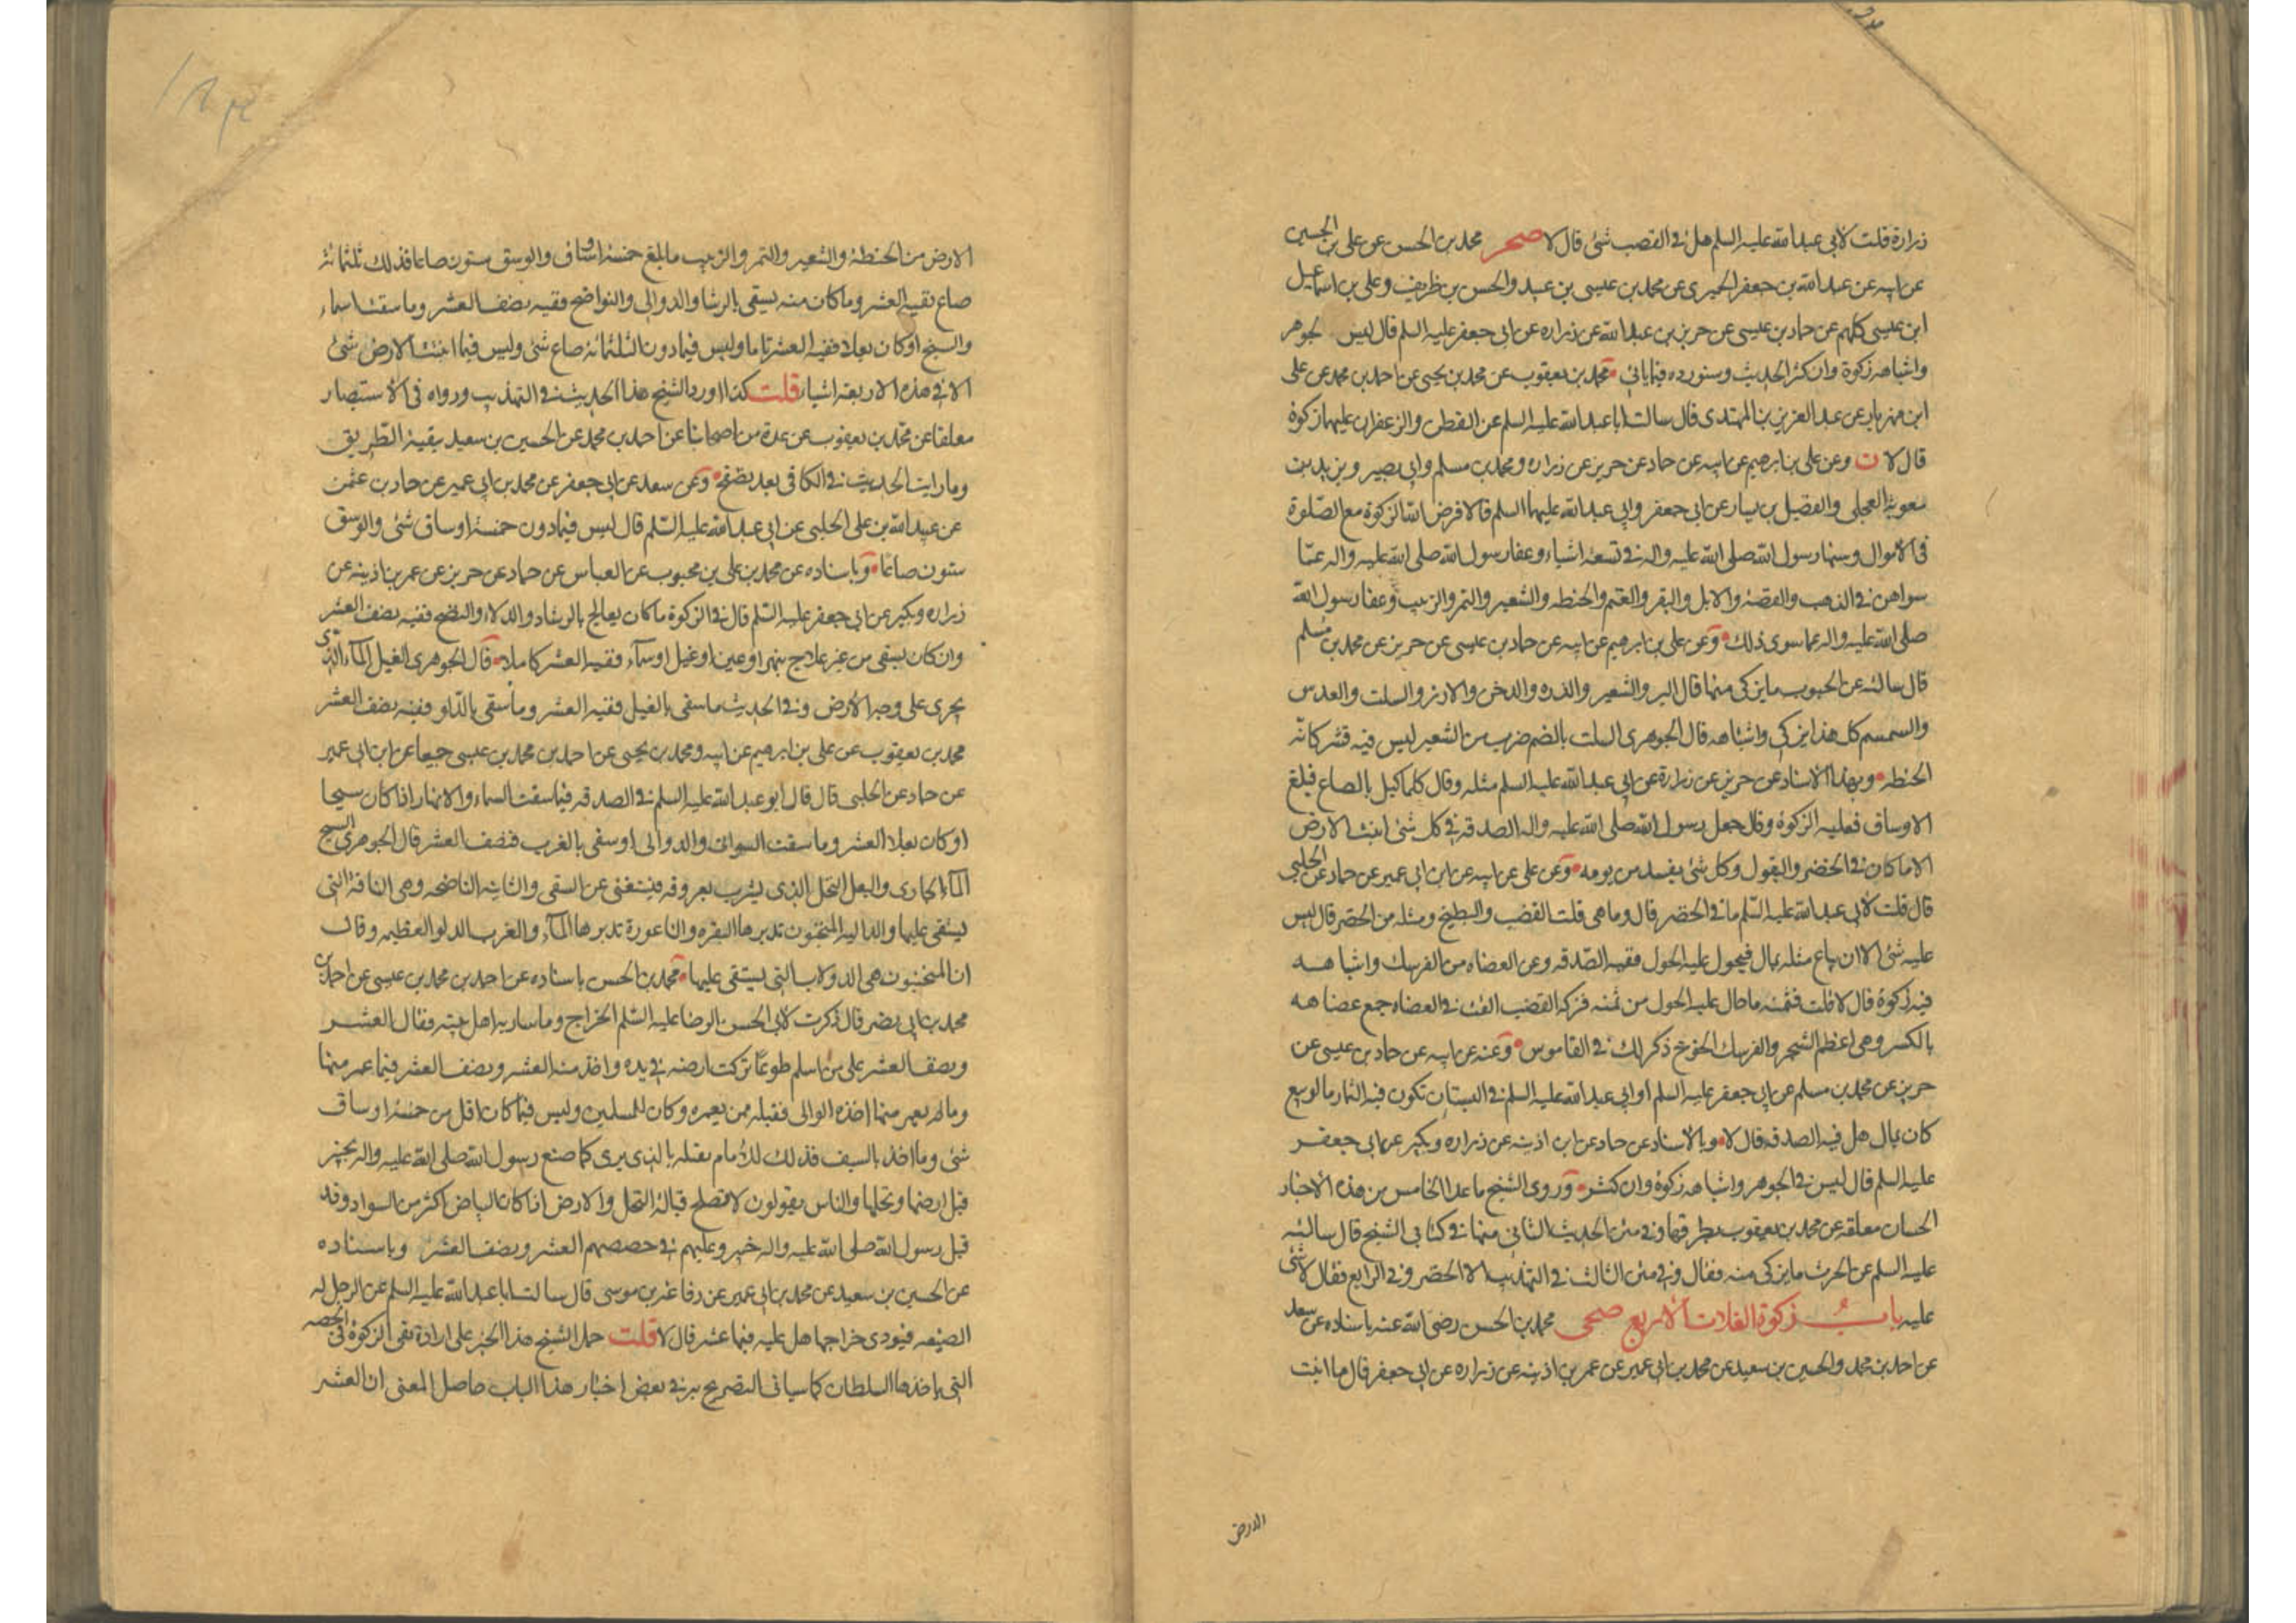 زرارة قلت لابي عبد الله عليه السلم هل في القصب شئ قال لا صحر محمد بن الحسن عن علي بن الحسين
عن ابيه عن عبد الله بن جعفر الحميري عن محمد بن عيسى بن عبيد والحسن بن ظريف وعلي بن اسماعيل
ابن عيسى كلهم عن حماد بن عيسى عن حريز بن عبد الله عن زراره عن ابي جعفر عليه السلم قال ليس لجوهر
واشباهه زكوة وان كثر الحديث وسنورده فيما ياتي محمد بن يعقوب عن محمد بن يحيى عن احمد بن محمد عن علي
ابن مهزيار عن عبد العزيز بن المهتدى قال سالت ابا عبد الله عليه السلم عن القطن والزعفران عليهما زكوة
قال لا ن وعن علي بن ابرهيم عن ابيه عن حماد عن حريز عن زراره ومحمد بن مسلم وابي بصير وبريد بن
معوية العجلي والفضيل بن يسار عن ابي جعفر وابي عبد الله عليهما السلم قالا فرض الله الزكوة مع الصلوة
في الاموال وسنها رسول الله صلى الله عليه واله في تسعة اشياء وعفا رسول الله صلى الله عليه واله عما
سواهن في الذهب والفضة والابل والبقر والغنم والحنطه والشعير والتمر والزبيب وعفا رسول الله
صلى الله عليه واله عما سوى ذلك وعن علي بن ابرهيم عن ابيه عن حماد بن عيسى عن حريز عن محمد بن مسلم
قال سالته عن الحبوب ما يزكى منها قال البر والشعير والذره والدخن والارز والسلت والعدس
والسمسم كل هذا يزكى واشباهه قال الجوهرى السلت بالضم ضرب من الشعير ليس فيه قشر كانه
الحنطه وبهذا الاسناد عن حريز عن زرارة عن ابي عبد الله عليه السلم مثله وقال كلما كيل بالصاع فبلغ
الاوساق فعليه الزكوة وقال جعل رسول الله صلى الله عليه واله الصدقه في كل شئ انبتت الارض
الا ما كان في الخضر والبقول وكل شئ يفسد من يومه وعن علي عن ابيه عن ابن ابي عمير عن حماد عن الحلبي
قال قلت لابي عبد الله عليه السلم ما في الخضر قال وما هى قلت القضب والبطيخ ومثله من الخضر قال ليس
عليه شئ الا ان يباع مثله بمال فيحول عليه الحول ففيه الصدقه وعن العضاه من الفرسك واشباهه
فيه زكوة قال لا قلت فثمنه ما حال عليه الحول من ثمنه فزكه القضب القت في العضاه جمع عضاهه
بالكسر وهى اعظم الشجر والفرسك الخوخ ذكر ذلك في القاموس وعنه عن ابيه عن حماد بن عيسى عن
حريز عن محمد بن مسلم عن ابي جعفر عليه السلم او ابي عبد الله عليه السلم في البستان تكون فيه الثمار ما لو بيع
كان بمال هل فيه الصدقه قال لا وبالاسناد عن حماد عن ابن اذينه عن زراره وبكير عن ابي جعفر
عليه السلم قال ليس في الجوهر واشباهه زكوة وان كثر وروى الشيخ ما عدا الخامس من هذه الاخبار
الحسان معلقه عن محمد بن يعقوب بطرقها وفي متن الحديث الثاني منها في كتابي الشيخ قال سالته
عليه السلم عن الحرث ما يزكى منه فقال وفي متن الثالث في التهذيب الا الخضر وفي الرابع فقال لا شئ
عليه باب زكوة الغلات الاربع صحى محمد بن الحسن رضى الله عنه باسناده عن سعد
عن احمد بن محمد والحسين بن سعيد عن محمد بن ابي عمير عن عمر بن اذينه عن زراره عن ابي جعفر قال ما انبت
الارض
الارض من الحنطة والشعير والتمر والزبيب ما بلغ خمسة اوساق والوسق ستون صاعا فذلك ثلثمائة
صاع ففيه العشر وما كان منه يسقى بالرشا والدوالى والنواضح ففيه نصف العشر وما سقت السماء
والسيح او كان بعلا ففيه العشر تاما وليس فيما دون الثلثمائة صاع شئ وليس فيما انبتت الارض شئ
الا في هذه الاربعة اشياء قلت كذا اورد الشيخ هذا الحديث في التهذيب ورواه في الاستبصار
معلقا عن محمد بن يعقوب عن عدة من اصحابنا عن احمد بن محمد عن الحسين بن سعيد ببقية الطريق
وما رايت الحديث في الكافي بعد تصفح وعن سعد عن ابي جعفر عن محمد بن ابي عمير عن حماد بن عثمن
عن عبيد الله بن على الحلبي عن ابي عبد الله عليه السلم قال ليس فيما دون خمسة اوساق شئ والوسق
ستون صاعا وباسناده عن محمد بن علي بن محبوب عن العباس عن حماد عن حريز عن عمر بن اذينه عن
زراره وبكير عن ابي جعفر عليه السلم قال في الزكوة ما كان يعالج بالرشاد والدلاء والنضح ففيه نصف العشر
وان كان يسقى من غير علاج بنهر او عين او غيل او سماء ففيه العشر كاملا قال الجوهرى الغيل الماء الذى
يجرى على وجه الارض وفي الحديث ما سقى بالغيل ففيه العشر وما سقى بالدلو ففيه نصف العشر
محمد بن يعقوب عن علي بن ابرهيم عن ابيه ومحمد بن يحيى عن احمد بن محمد بن عيسى جميعا عن ابن ابي عمير
عن حماد عن الحلبي قال قال ابو عبد الله عليه السلم في الصدقه فيما سقت السماء والانهار اذا كان سيحا
او كان بعلا العشر وما سقت السواني والدوالى او سقى بالغرب فنصف العشر قال الجوهرى السيح
الماء الجارى والبعل النخل الذى يشرب بعروقه فيستغنى عن السقى والثانيه الناضحه وهى الناقة التى
يستقى عليها والداليه المنجنون تديرها البقره والناعورة تديرها الماء والغرب الدلو العظيمه وقال
ان المنجنون هى الدولاب التى يستقى عليها محمد بن الحسن باسناده عن احمد بن محمد بن عيسى عن احمد بن
محمد بن ابي نصر قال ذكرت لابي الحسن الرضا عليه السلم الخراج وما سار به اهل بيته فقال العشر
ونصف العشر على من اسلم طوعا تركت ارضه في يده واخذ منه العشر ونصف العشر فيما عمر منها
وما لم يعمر منها اخذه الوالى فقبله ممن يعمره وكان للمسلمين وليس فيما كان اقل من خمسة اوساق
شئ وما اخذ بالسيف فذلك للامام يقبله بالذى يرى كما صنع رسول الله صلى الله عليه واله بخيبر
قبل ارضها ونخلها والناس يقولون لا تصلح قبالة النخل والارض اذا كان البياض اكثر من السواد وقد
قبل رسول الله صلى الله عليه واله خيبر وعليهم في حصصهم العشر ونصف العشر وباسناده
عن الحسين بن سعيد عن محمد بن ابي عمير عن رفاعة بن موسى قال سالت ابا عبد الله عليه السلم عن الرجل له
الضيعه فيودى خراجها هل عليه فيها عشر قال لا قلت حمل الشيخ هذا الخبر على ارادة نفى الزكوة في الحصه
التى ياخذها السلطان كما سياتى التصريح به في بعض اخبار هذا الباب حاصل المعنى ان العشر